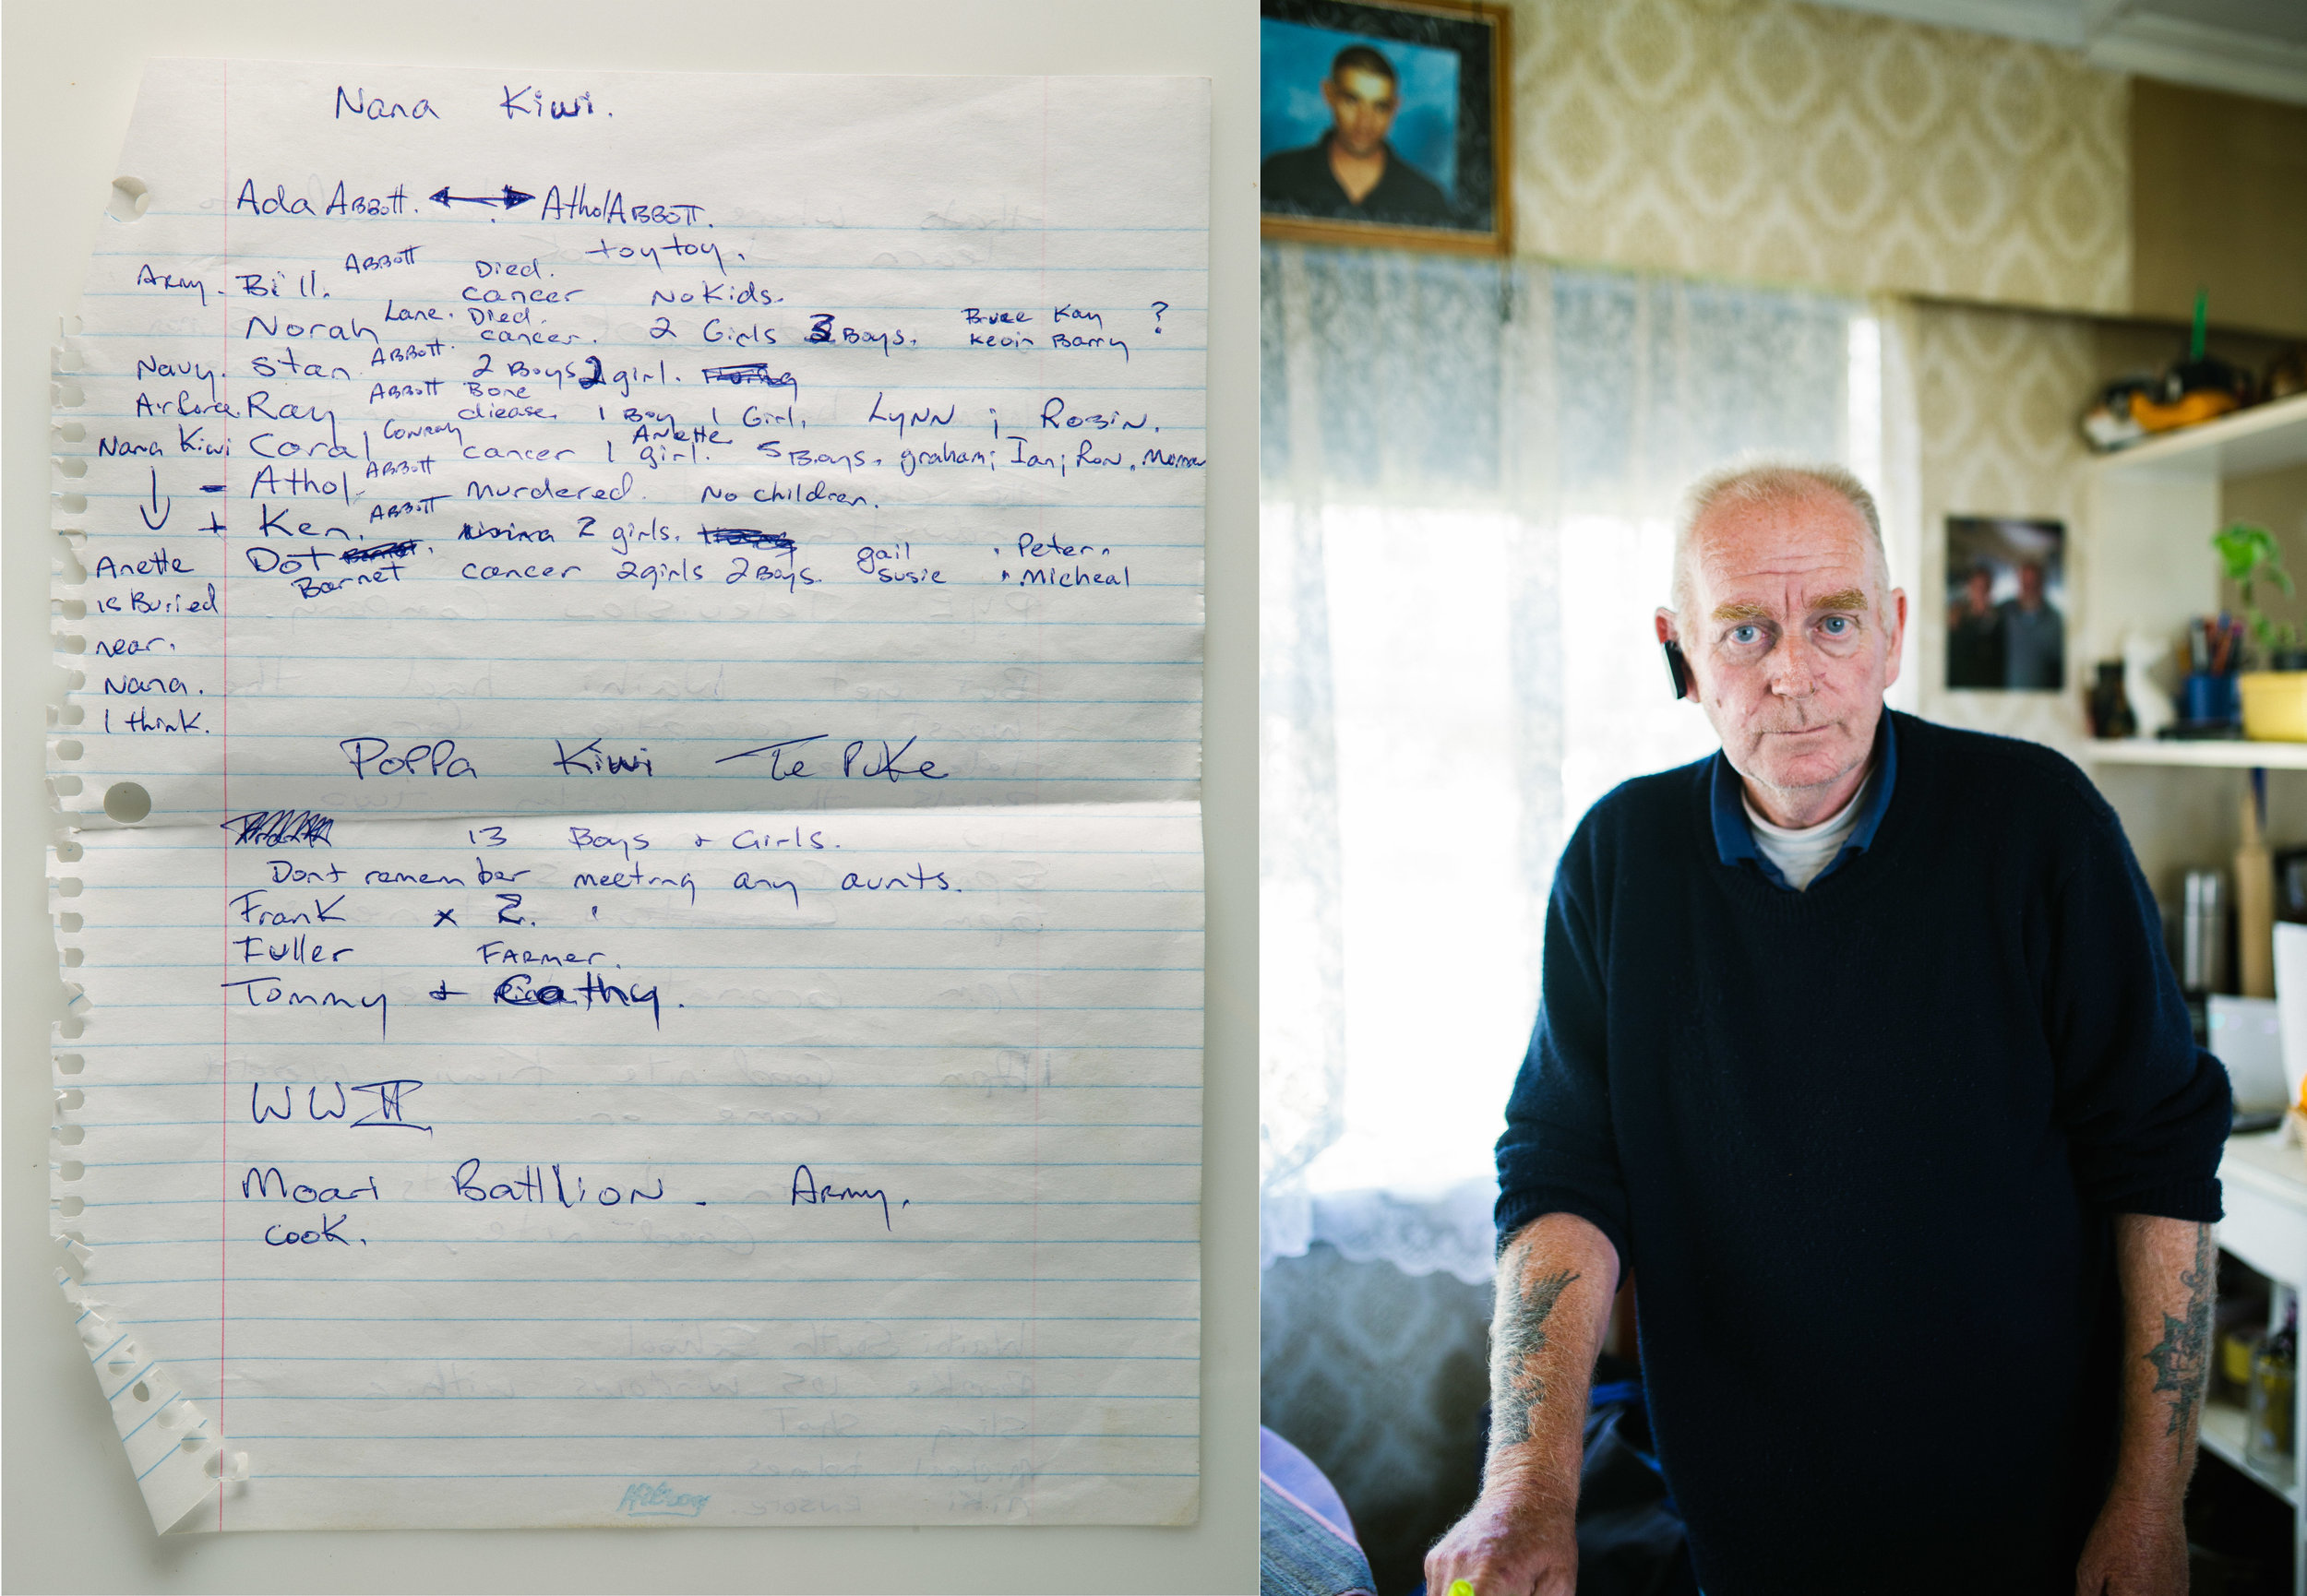 Nana Kiwi.
Ada ABBott. AtholABBOTT.
toytoy.
Army. Bill. ABBott Died. cancer No Kids.
Norah Lane. Died. cancer. 2 Girls 3 Boys. Kay ? Kevin Barry
Navy. Stan ABBott. 2 Boys 2 girl.
Airforce. Ray ABBott Bone diease. 1 Boy 1 Girl. LyNN ; RoBiN.
Nana Kiwi Coral Conroy cancer 1 girl. Anette 5 Boys. graham; Ian; Ron.
- Athol ABBott Murdered. No children.
+ Ken. ABBott 2 girls.
Dot Barnet cancer 2girls 2Boys. gail susie Peter. Micheal
Anette
is Buried
near.
Nana.
I think.
Poppa Kiwi Te Puke
13 Boys + Girls.
Dont remember meeting any aunts.
Frank x 2.
Fuller FArmer.
Tommy + Cathy.
WWII
Moari Batllion. Army.
cook.